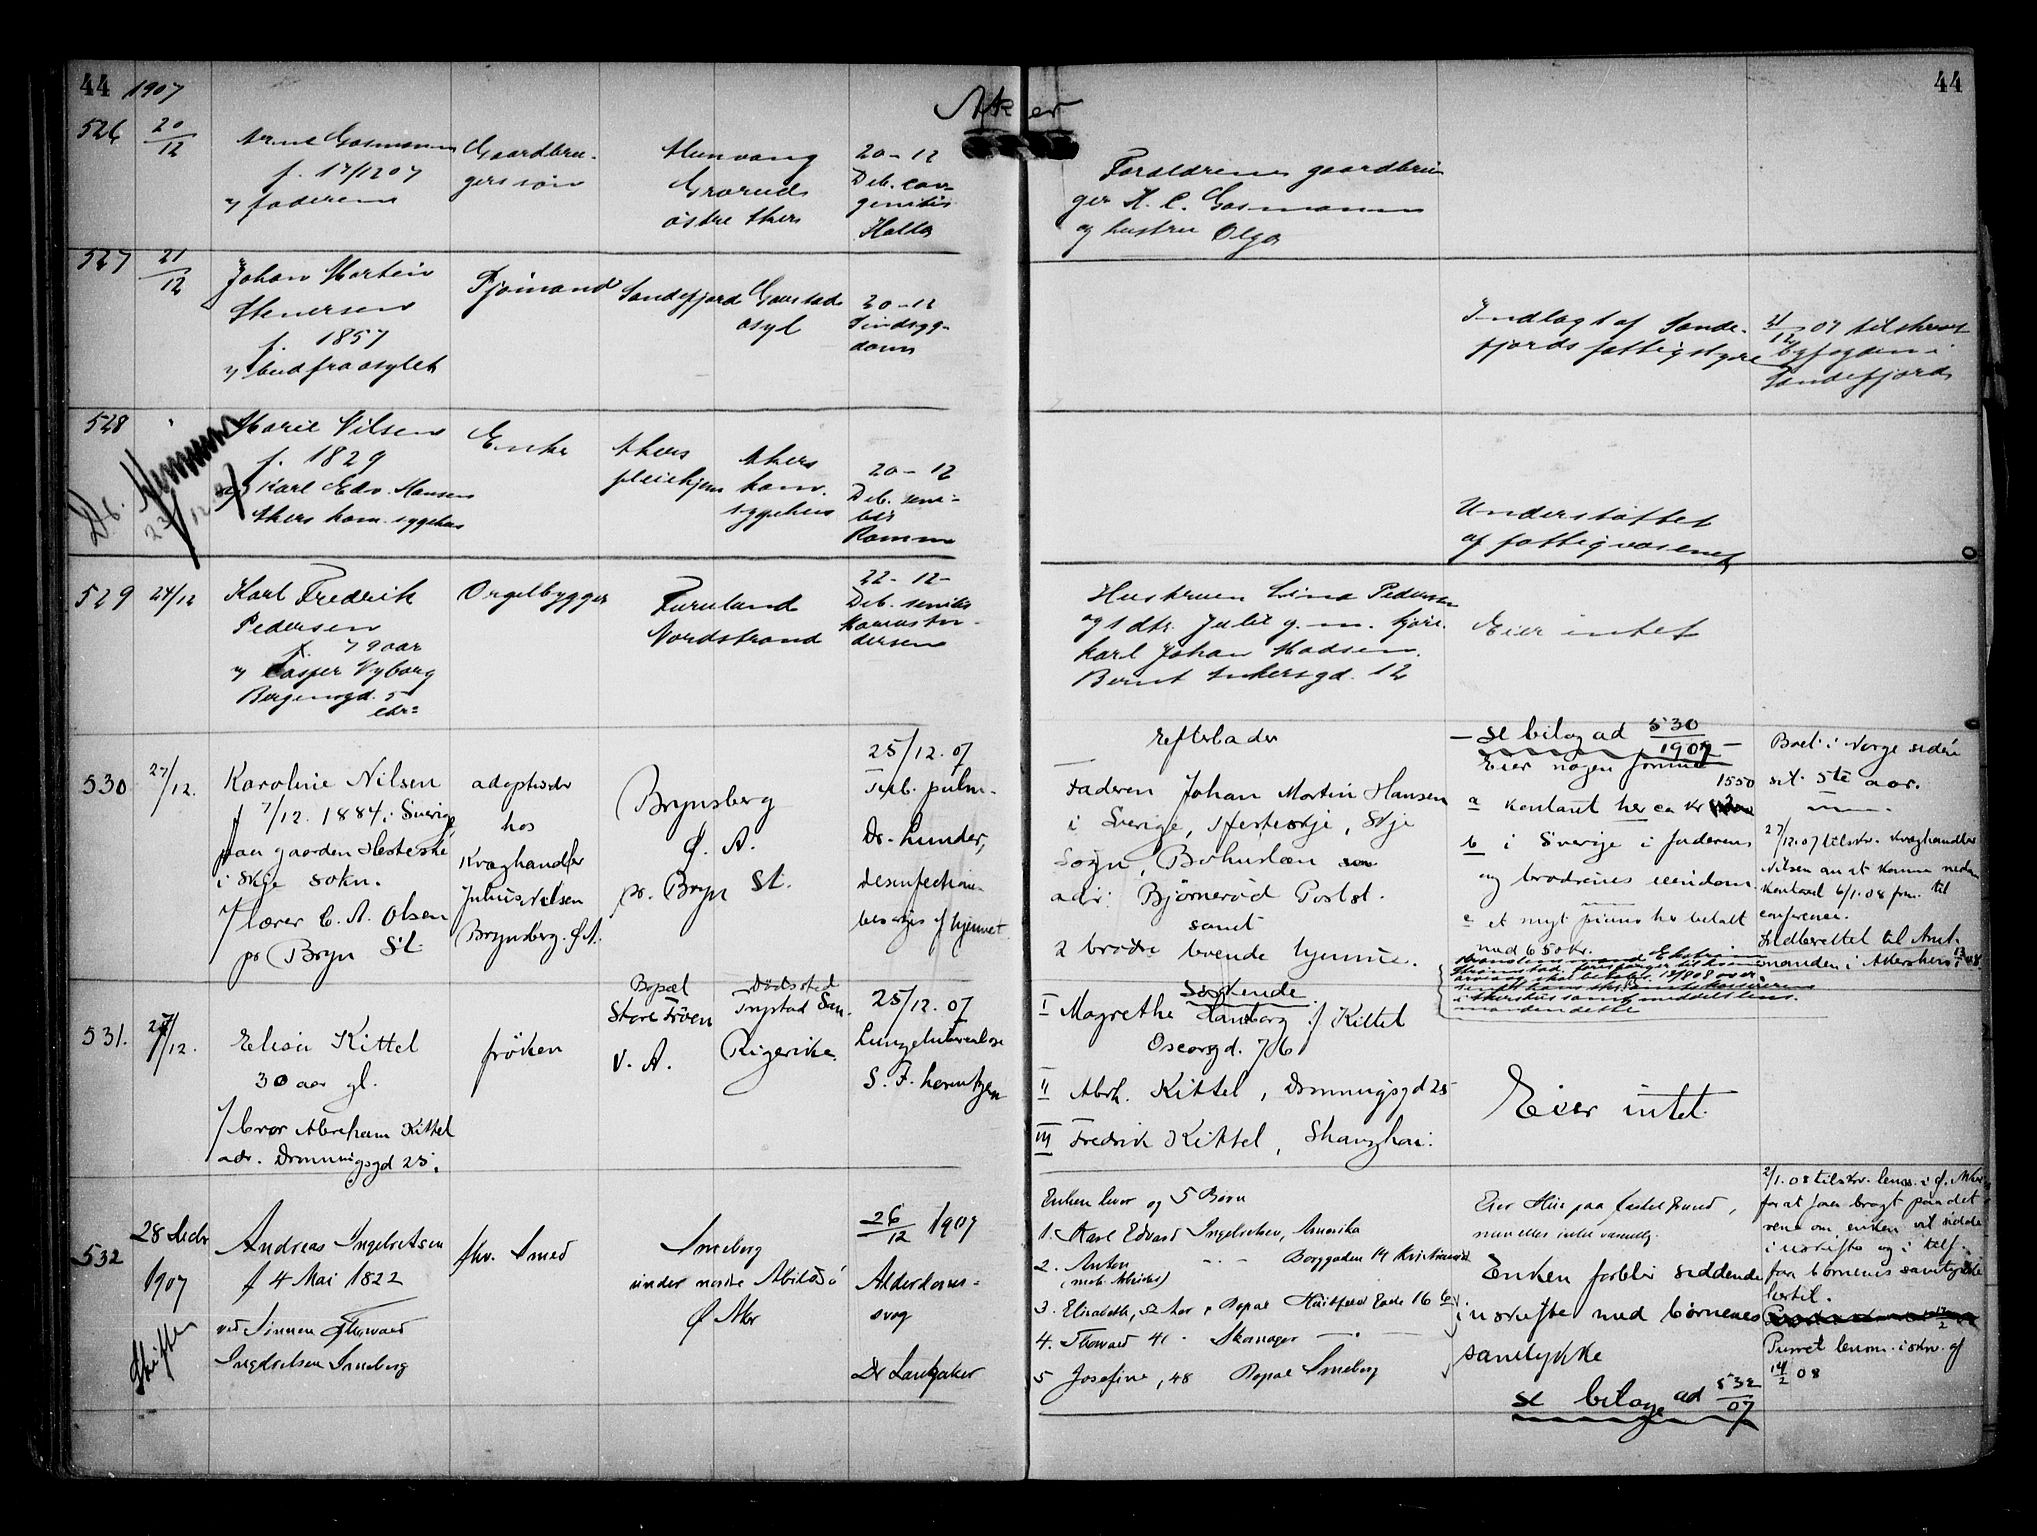 44 1907
Aker
44
526 20/12
Arne Gasmann
f. 17/12 07
v/ faderen
Gaardbru-
gers søn
Alunvang
Grorud
østre Akers
20-12
Deb. con-
genitis
Holta
Forældrene gaardbru-
ger H. C. Gasmann
og hustru Olga
527 21/12
Johan Martin
Stenersen
f. 1857
v/ bud fra asylet
Sjømand
Sandefjord
Gaustad
asyl
20-12
Sindssyg-
dom
Indlagt af Sande-
fjords fattigstyre
21/12 07 tilskrevet
byfogden i
Sandefjord
528
Marie Nilsen
f. 1829
v/ Karl Edv. Hansen
Akers kom. sygehus
Enke
Akers
pleiehjem
Akers
kom.
sygehus
20-12
Deb. seni-
lis
Ramm
Understøttet
af fattigvæsenet
Db.
23/12 07
529 24/12
Karl Fredrik
Pedersen
f. 79 aar
v/ Casper Nyborg
Bergensgd. 5
Orgelbygger
Furulund
Nordstrand
22-12-
Deb. senilis
Hustruen Lina Pedersen
og 1 dtr. Julie g. m.
Karl Johan Madsen.
Bernt Ankersgd. 12
Eier intet
530 27/12.
Karoline Nilsen
f 7/12. 1884 i Sverige
paa gaarden Hesteskie
i Skje sokn.
v/ lærer C. A. Olsen
pr Bryn St.
adoptivdtr
hos
Kvæghandler
Julius Nilsen
Brynsberg. Ø. A.
Brynsberg
Ø. A.
pr. Bryn St.
25/12. 07
Tub. pulm.
Dr. Lunder,
desinfection
besørges af hjemmet.
Efterlader
Faderen Johan Martin Hansen
i Sverige, Hesteskje, Skje
Sogn, Bohuslæn
adr: Bjørnerød Postst.
samt
2 brødre boende hjemme.
- se bilag ad 530/1907 -
Eier nogen formue
1550
a kontant her ca kr
b i Sverige i faderens
og brødrenes eiendom.
c et nyt piano her betalt
med 650 kr.
Boet i Norge siden
sit 5te aar.
27/12. 07 tilskr. kvæghandler
Nilsen om at komme nedom
kontoret 6/1. 08 fm. til
conference.
Indberettet til Amt-
manden i Akershus
531. 27/12.
Elisa Kittel
30 aar gl.
v/ bror Abraham Kittel
adr. Dronningsgd 25.
frøken
Bopæl
Store Frøen
V. A.
Dødssted
Tnystad San.
Ringerike.
25/12. 07
Lungetuberculose
S. F. Lorentzen
Søskende
I Magrethe Hamborg f/ Kittel
Oscarsgd. 76
II Abrh. Kittel, Dronningsgd 25
III Fredrik Kittel, Shanghai.
Eier intet.
532
28 Decbr
1907
Skifte
Andreas Ingebretsen
f 4 Mai 1822
ved Sønnen Thorvard
Ingebretsen Smeberg
fhv. Smed
Smeberg
under nordre Abildsø
Ø Aker
26/12 1907
Alderdoms-
svag
Dr Langaker
Enken lever og 5 Børn
1. Karl Edvard Ingebretsen, Amerika
2. Anton - - - Borggaden 14 Kristiania
3. Elisabeth, 52 Aar, Bopæl Huitfeldt Gade 16
4. Thorvard 41 - Skomager
5 Josefine, 48 Bopæl Smeberg
Eier Hus paa fæstet Grund,
men ellers intet væsentlig.
Enken forblir siddende
i uskifte med børnenes
samtykke
se bilage ad 532/07
2/1. 08 tilskr. lensm. i Ø. Aker
for at faa bragt paa det
rene om enken vil sidde
i uskifte og i tilf.
faa børnenes samtykke
hertil.
Purret lensm. i skr. af
14/2 08